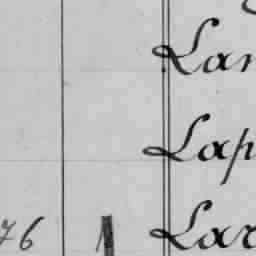 Lan
Lap
76 Lar